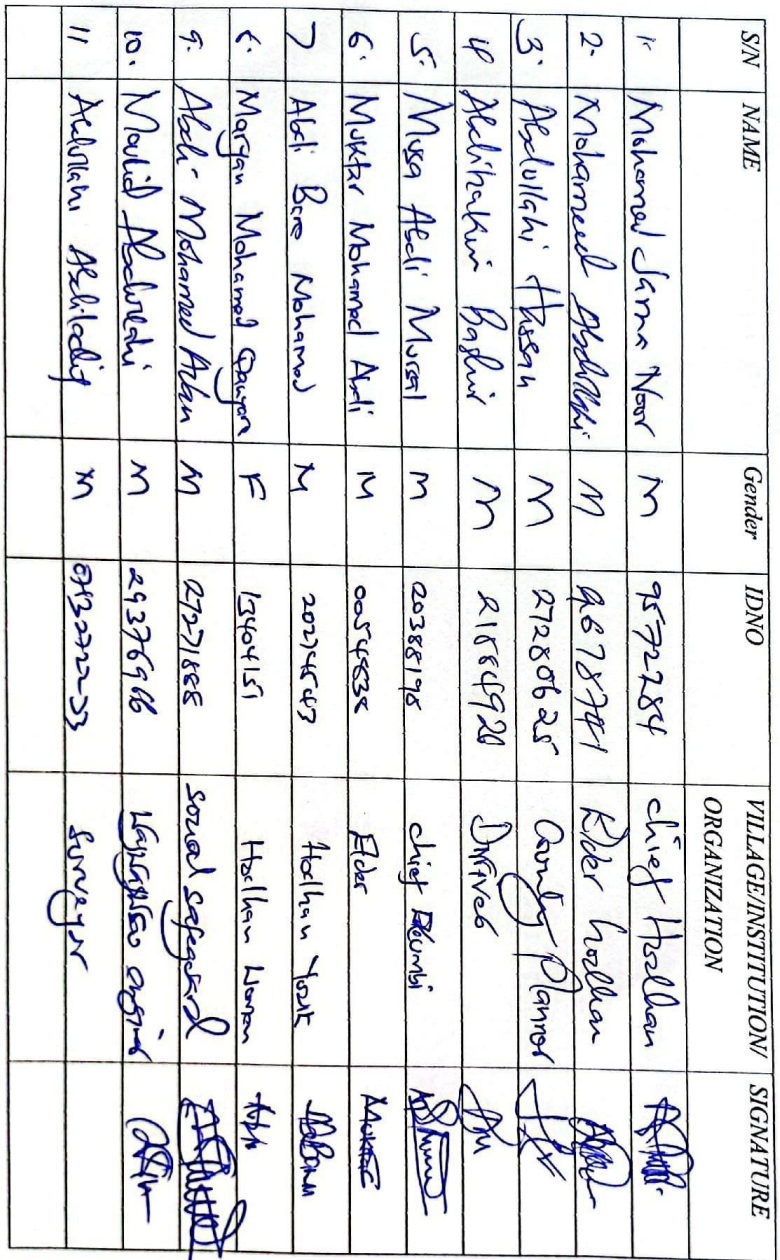 S/N NAME Gender IDNO VILLAGE/INSTITUTION/
ORGANIZATION SIGNATURE
1. Mohamed Jama Noor M 9572284 chief Hodhan
2. Mohamed Abdullahi M Elder hodhan
3. Abdullahi Hassan M 27280625 County Planner
4 Abdihakim Bashir M 21884920 Driver
5. Musa Abdi Mursal M 20388198 chief
6. Muktar Mohamed Abdi M Elder Muktar
7 Abdi Bare Mohamed M Hodhan Youth
8. Maryan Mohamed F 13404151 Hodhan Women
9. Abdi Mohamed M 27271888 social safeguard
10. Mowlid Abdullahi M 29376966
11 Abdullahi M Surveyor